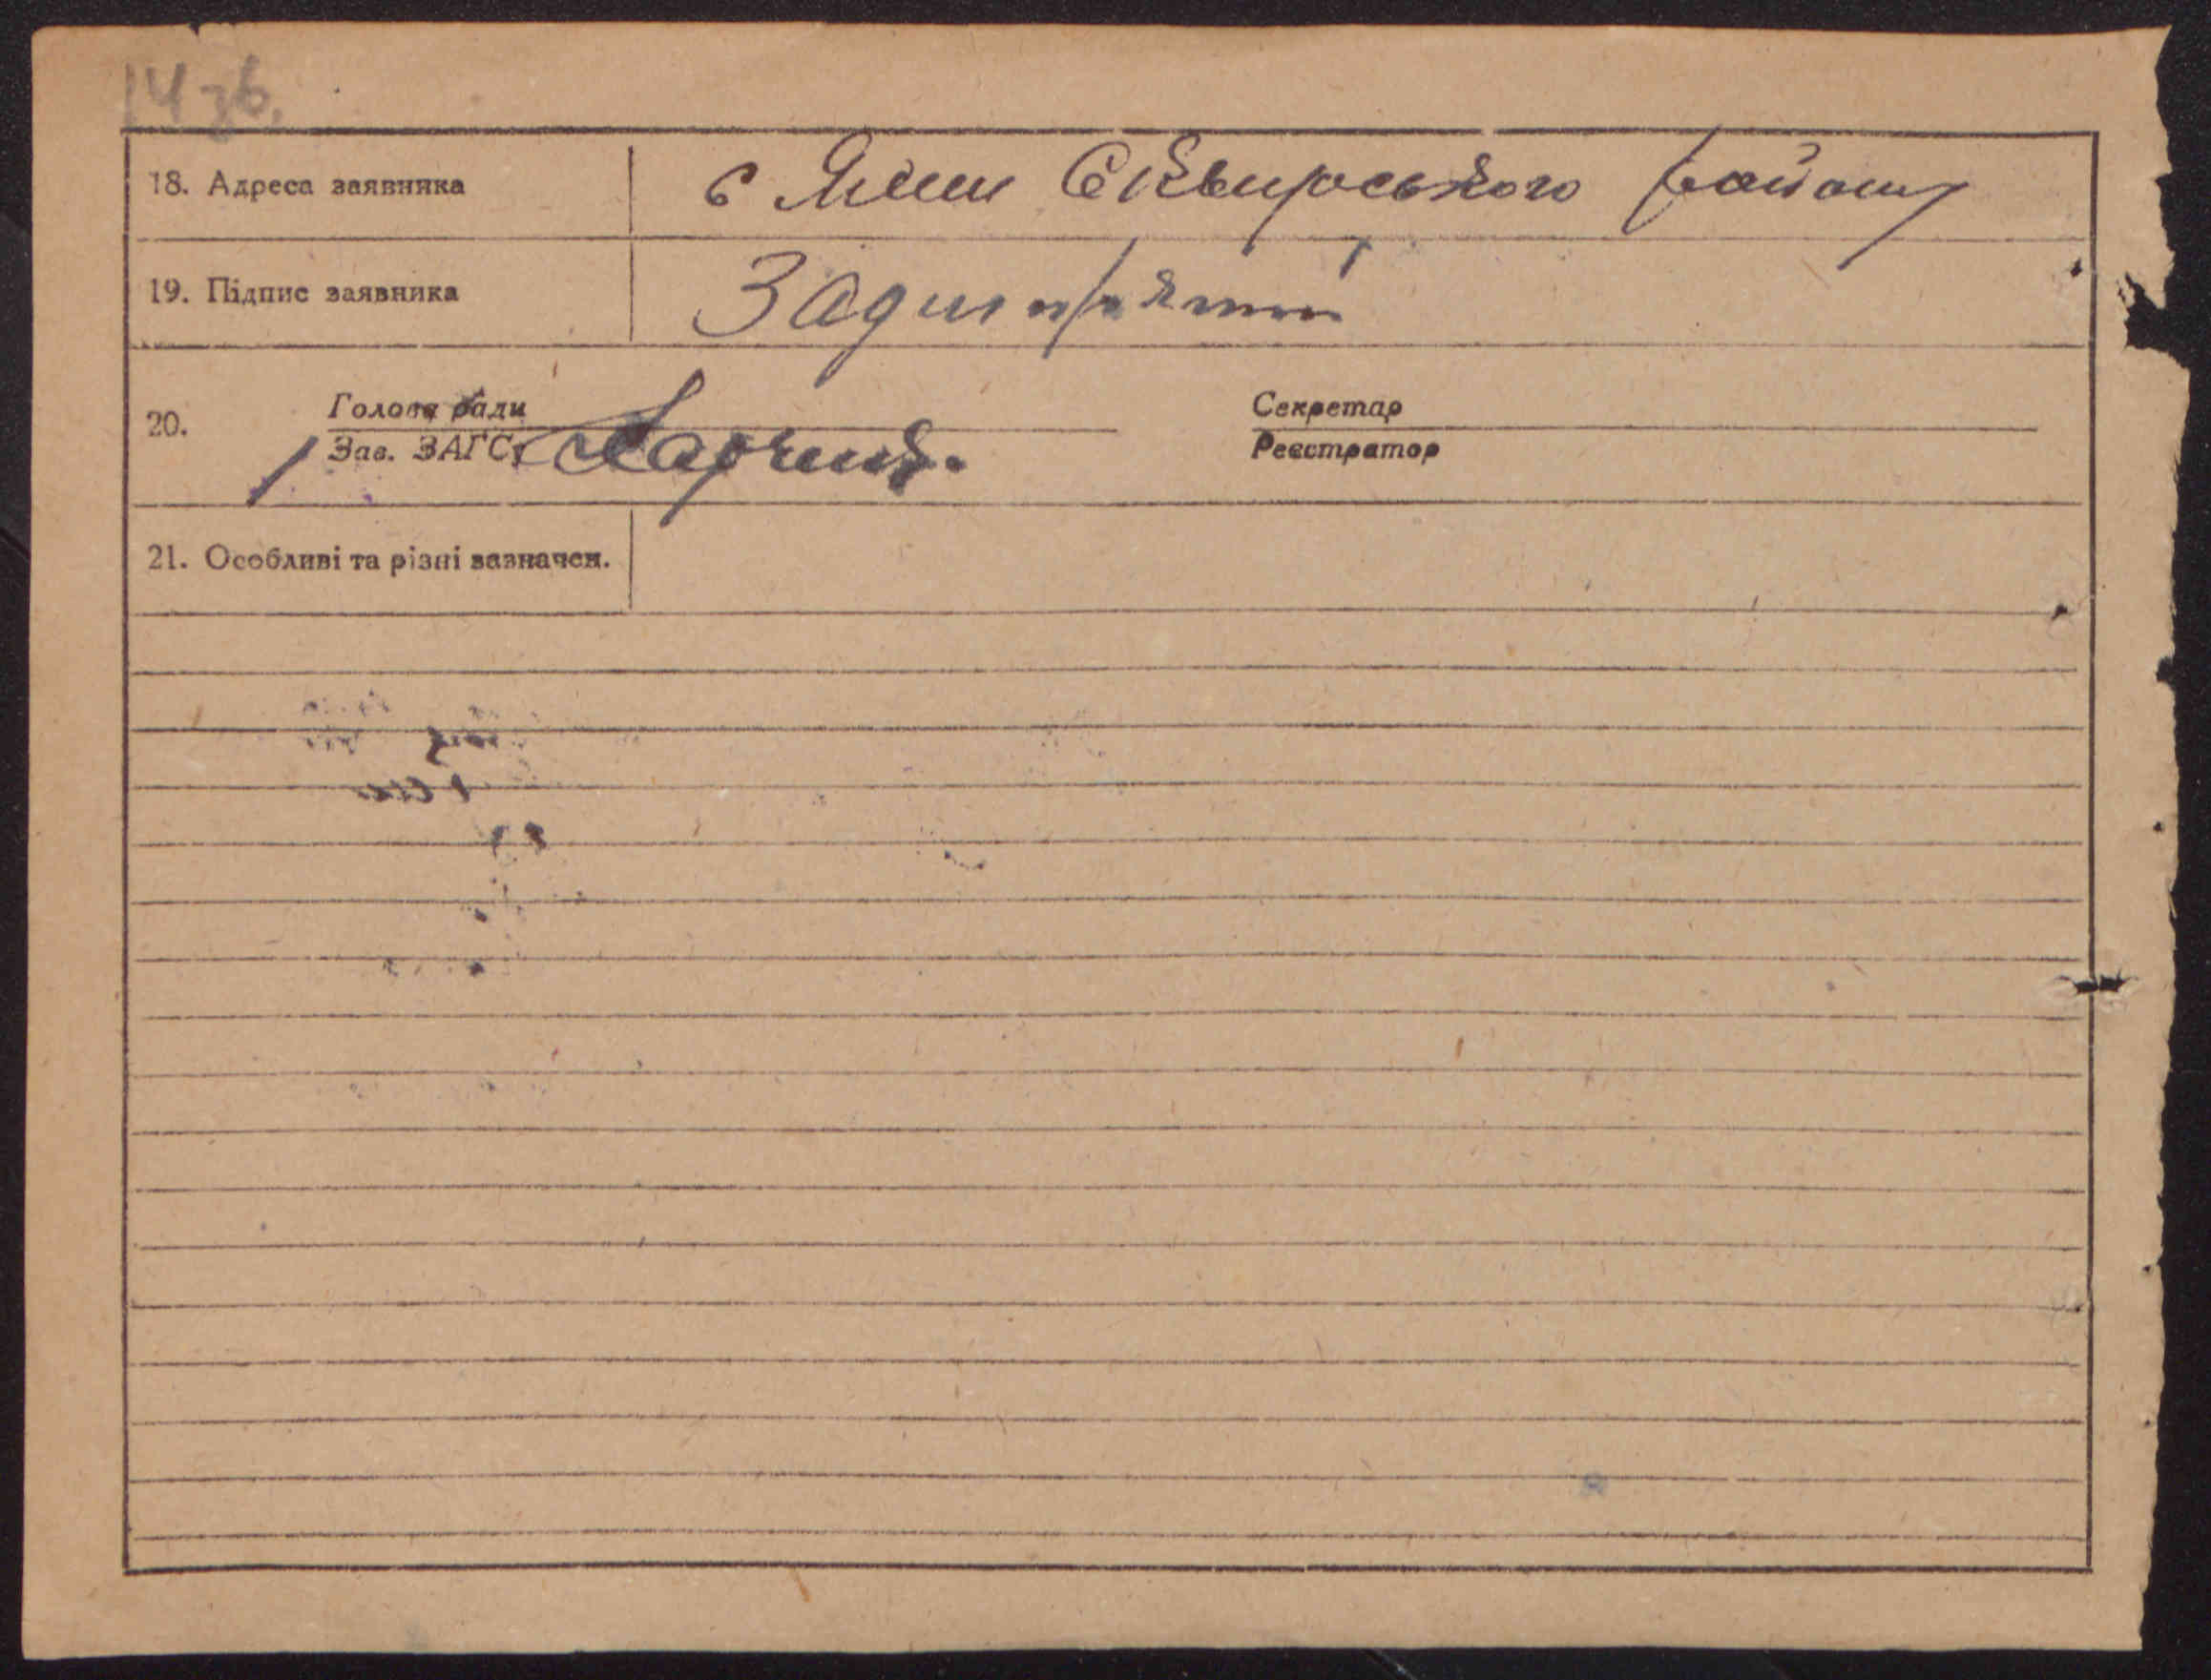 14 зв.
18. Адреса заявника с Ями Сквирського району
19. Підпис заявника
20. Голова ради Секретар
Зав. ЗАГС Реєстратор
21. Особливі та різні зазначен.